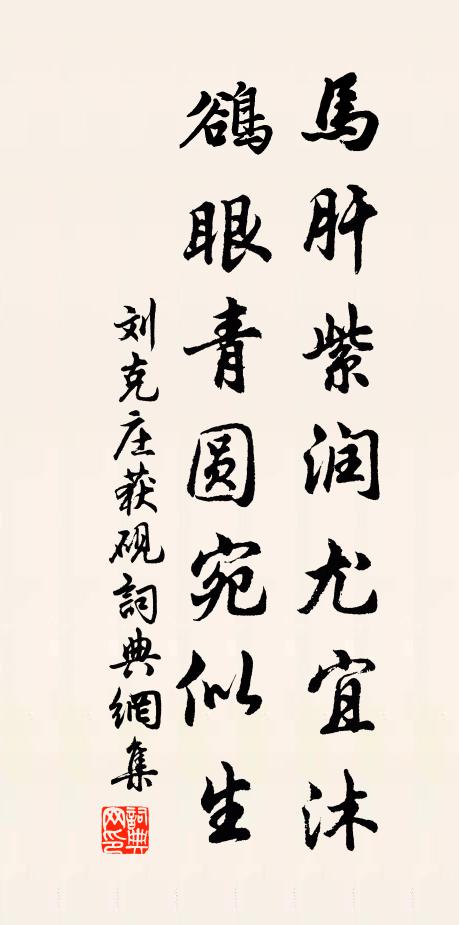 馬肝紫润尤宜沐
鵒眼青圆宛似生
刘克庄获砚詞典網集
詞典网印